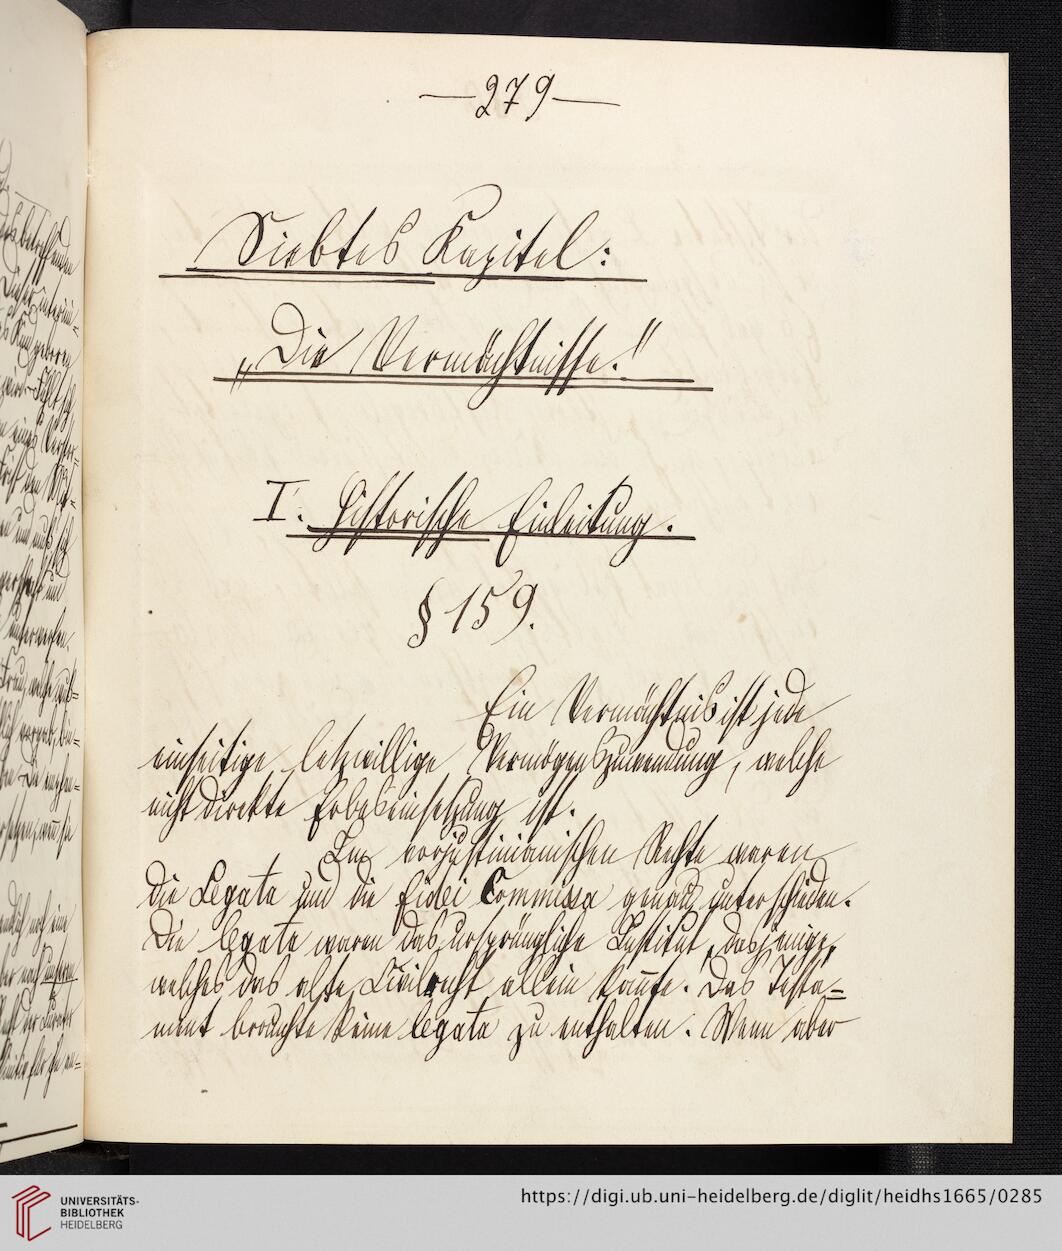 —279—
Siebtes Kapitel:
„Die Vermächtnisse."
I. Historische Einleitung.
§ 159.
Ein Vermächtnis ist jede
einseitige letzwillige Vermögenszuwendung, welche
nicht direkte Erbeseinsetzung ist.
Im vorjustinianischen Rechte waren
die Legata und die Fidei Commissa genau unterschieden.
Die legata waren das ursprüngliche Institut, dasjenige,
welches das alte Civilrecht allein kannte. Das Testa=
ment brauchte keine legata zu enthalten. Wenn aber
UNIVERSITÄTS-
BIBLIOTHEK
HEIDELBERG
https://digi.ub.uni-heidelberg.de/diglit/heidhs1665/0285